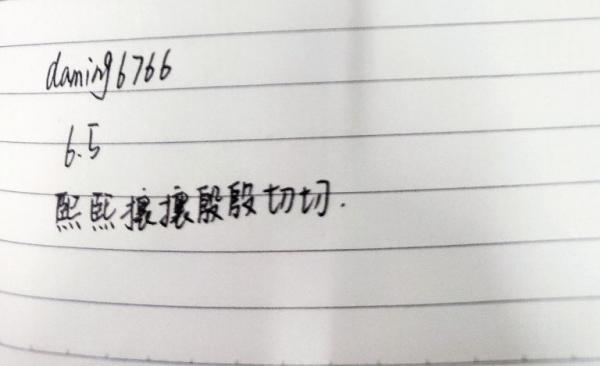 daming6766
6.5
熙熙攘攘殷殷切切.